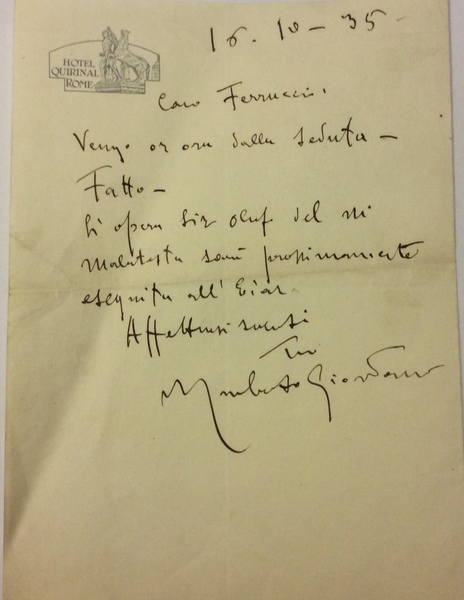 HOTEL
QUIRINAL
ROME
16.10-35-
Caro Ferruccio,
Vengo or ora dalla seduta -
Fatto -
L'opera Sir Oluf del M
Malatesta sarà prossimamente
eseguita all'Eiar.
Affettuosi saluti
Tuo
Umberto Giordano